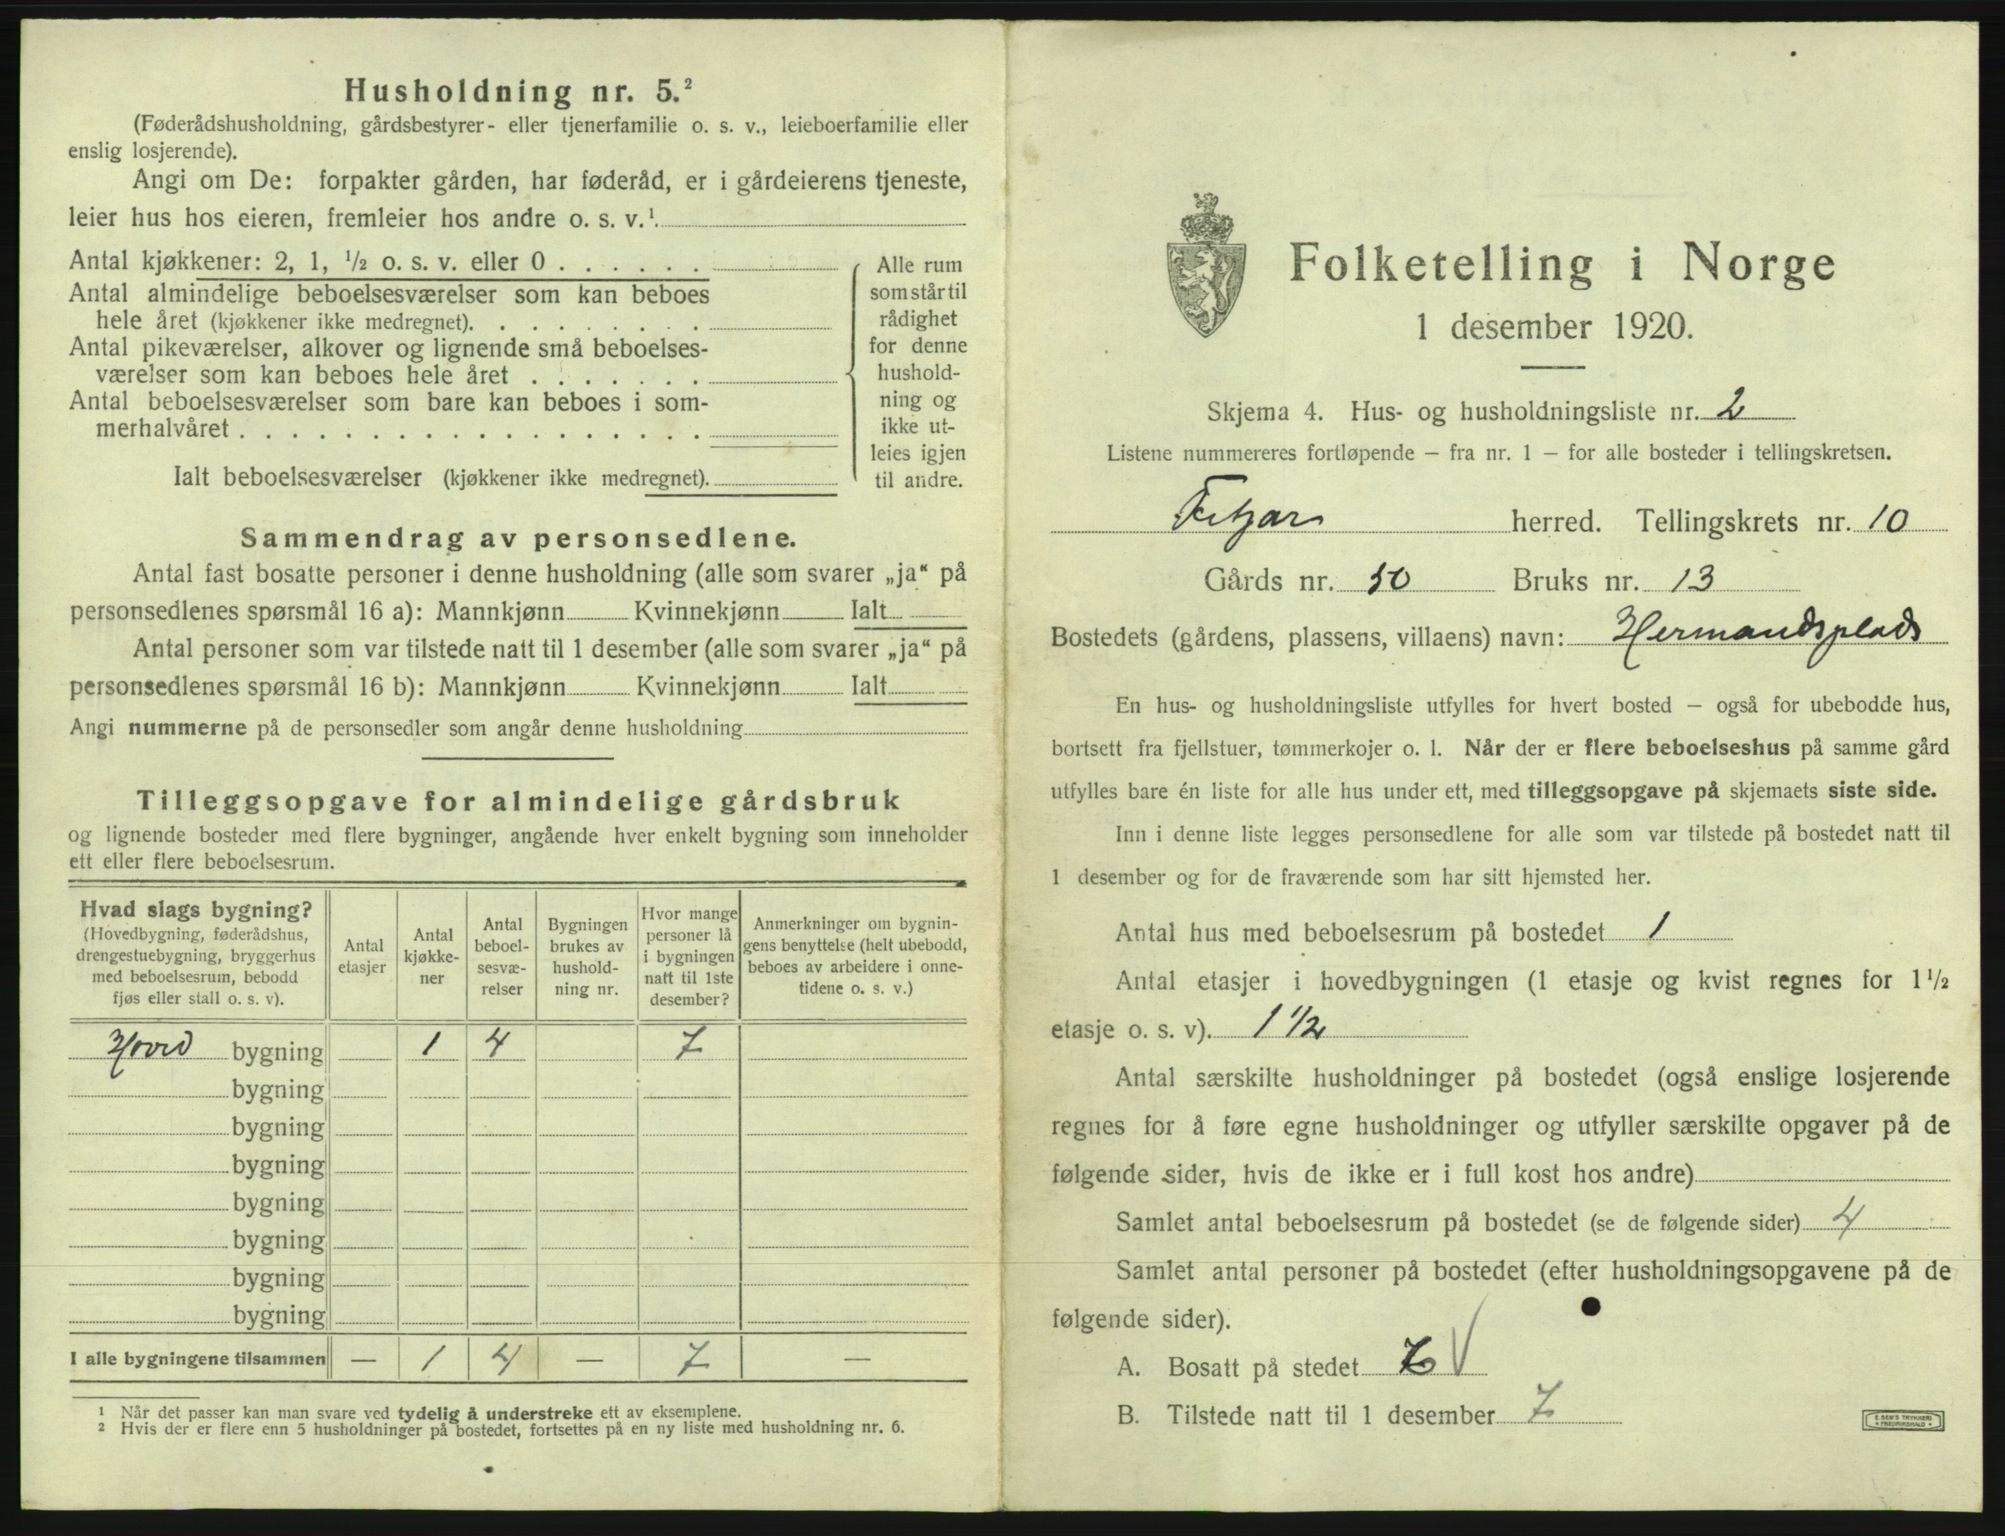 Husholdning nr. 5.²
(Føderådshusholdning, gårdsbestyrer- eller tjenerfamilie o. s. v., leieboerfamilie eller
enslig losjerende).
Angi om De: forpakter gården, har føderåd, er i gårdeierens tjeneste,
leier hus hos eieren, fremleier hos andre o. s. v.¹
Antal kjøkkener: 2, 1, ½ o. s. v. eller 0
Antal almindelige beboelsesværelser som kan beboes
hele året (kjøkkener ikke medregnet).
Antal pikeværelser, alkover og lignende små beboelses-
værelser som kan beboes hele året
Antal beboelsesværelser som bare kan beboes i som-
merhalvåret
Ialt beboelsesværelser (kjøkkener ikke medregnet).
Alle rum
som står til
rådighet
for denne
hushold-
ning og
ikke ut-
leies igjen
til andre.
Sammendrag av personsedlene.
Antal fast bosatte personer i denne husholdning (alle som svarer „ja“ på
personsedlenes spørsmål 16 a): Mannkjønn Kvinnekjønn Ialt
Antal personer som var tilstede natt til 1 desember (alle som svarer „ja“ på
personsedlenes spørsmål 16 b): Mannkjønn Kvinnekjønn Ialt
Angi nummerne på de personsedler som angår denne husholdning
Tilleggsopgave for almindelige gårdsbruk
og lignende bosteder med flere bygninger, angående hver enkelt bygning som inneholder
ett eller flere beboelsesrum.
Hvad slags bygning?
(Hovedbygning, føderådshus,
drengestuebygning, bryggerhus
med beboelsesrum, bebodd
fjøs eller stall o. s. v).
Antal
etasjer
Antal
kjøkke-
ner
Antal
beboel-
sesvæ-
relser
Bygningen
brukes av
hushold-
ning nr.
Hvor mange
personer lå
i bygningen
natt til 1ste
desember?
Anmerkninger om bygnin-
gens benyttelse (helt ubebodd,
beboes av arbeidere i onne-
tidene o. s. v.)
Hoved bygning 1 4 7
bygning
bygning
bygning
bygning
bygning
bygning
bygning
I alle bygningene tilsammen — 1 4 — 7 —
¹ Når det passer kan man svare ved tydelig å understreke ett av eksemplene.
² Hvis der er flere enn 5 husholdninger på bostedet, fortsettes på en ny liste med husholdning nr. 6.
Folketelling i Norge
1 desember 1920.
Skjema 4. Hus- og husholdningsliste nr. 2
Listene nummereres fortløpende – fra nr. 1 – for alle bosteder i tellingskretsen.
Fitjar herred. Tellingskrets nr. 10
Gårds nr. 50 Bruks nr. 13
Bostedets (gårdens, plassens, villaens) navn: Hermandsplads
En hus- og husholdningsliste utfylles for hvert bosted – også for ubebodde hus,
bortsett fra fjellstuer, tømmerkojer o. l. Når der er flere beboelseshus på samme gård
utfylles bare én liste for alle hus under ett, med tilleggsopgave på skjemaets siste side.
Inn i denne liste legges personsedlene for alle som var tilstede på bostedet natt til
1 desember og for de fraværende som har sitt hjemsted her.
Antal hus med beboelsesrum på bostedet 1
Antal etasjer i hovedbygningen (1 etasje og kvist regnes for 1½
etasje o. s. v). 1½
Antal særskilte husholdninger på bostedet (også enslige losjerende
regnes for å føre egne husholdninger og utfyller særskilte opgaver på de
følgende sider, hvis de ikke er i full kost hos andre)
Samlet antal beboelsesrum på bostedet (se de følgende sider) 4
Samlet antal personer på bostedet (efter husholdningsopgavene på de
følgende sider).
A. Bosatt på stedet
B. Tilstede natt til 1 desember 7
E. SEM'S TRYKKERI
FREDRIKSHALD